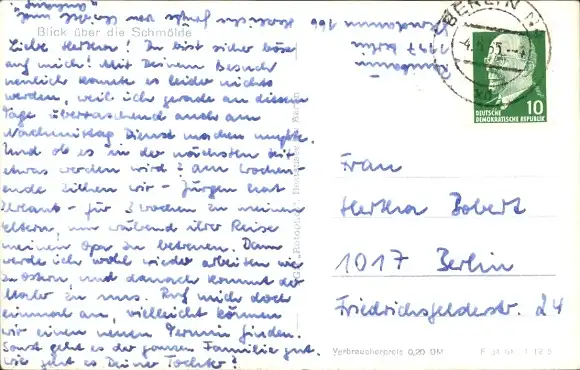 Blick über die Schmölde
Liebe Hertha! Du bist sicher böse
auf mich! Mit Deinem Besuch
neulich konnte es leider nichts
werden, weil ich gerade an diesem
Tage überraschend auch am
Nachmittag Dienst machen mußte.
Und ob es in der nächsten Zeit
etwas werden wird? Am Wochen-
ende ziehen wir - Jürgen hat
Urlaub - für 3 Wochen zu meinen
Eltern, um während ihrer Reise
meinen Opa zu betreuen. Dann
werde ich wohl wieder arbeiten wie
zu Ostern, und danach kommt der
Maler zu uns. Ruf mich doch
einmal an, vielleicht können
wir einen neuen Termin finden.
Sonst geht es der ganzen Familie gut.
Wie geht es Deiner Tochter?
Herzlichen
166
1197 Berlin
BERLIN
DEUTSCHE
DEMOKRATISCHE REPUBLIK
10
Frau
Hertha Bobert
1017 Berlin
Friedrichsfelderstr. 24
Verbraucherpreis 0,20 DM